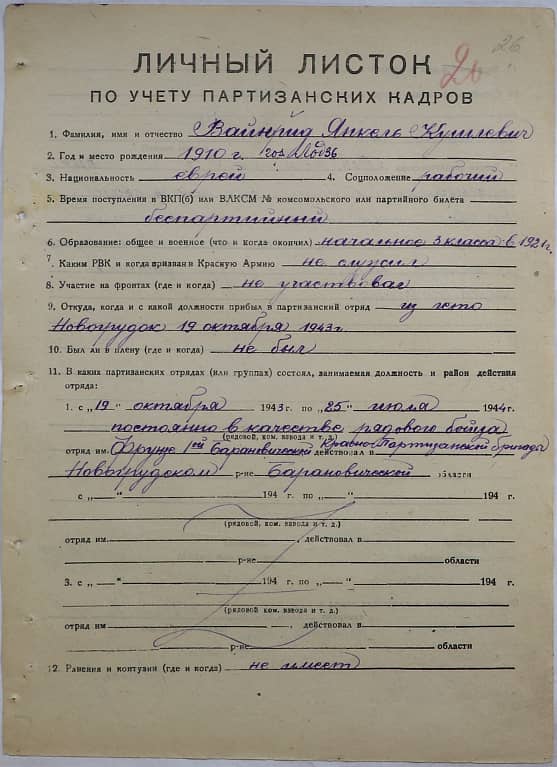 26
20
ЛИЧНЫЙ ЛИСТОК
ПО УЧЕТУ ПАРТИЗАНСКИХ КАДРОВ
1. Фамилия, имя и отчество Вайнрид Янкель Кушлевич
2. Год и место рождения 1910 г. гор. Лодзь
3. Национальность еврей 4. Соцположение рабочий
5. Время поступления в ВКП(б) или ВЛКСМ № комсомольского или партийного билета
беспартийный
6. Образование: общее и военное (что и когда окончил) начальное 3 класса в 1921 г.
7. Каким РВК и когда призван в Красную Армию не служил
8. Участие на фронтах (где и когда) не участвовал
9. Откуда, когда и с какой должности прибыл в партизанский отряд из гето
Новогрудок 19 октября 1943 г.
10. Был ли в плену (где и когда) не был
11. В каких партизанских отрядах (или группах) состоял, занимаемая должность и район действия
отряда:
1. с „19" октября 1943 г. по „25" июля 1944 г.
постоянно в качестве рядового бойца
(рядовой, ком. взвода и т. д.)
отряд им. Фрунзе 1ой Барановической Красно-Партизанской бригады действовал в
Новогрудском р-не Барановической области
с „ " 194 г. по „ " 194 г.
(рядовой, ком. взвода и т. д.)
отряд им. , действовал в
р-не области
3. с „ " 194 г. по „ " 194 г.
(рядовой, ком. взвода и т. д.)
отряд им , действовал в
р-не области
12. Ранения и контузии (где и когда) не имеет